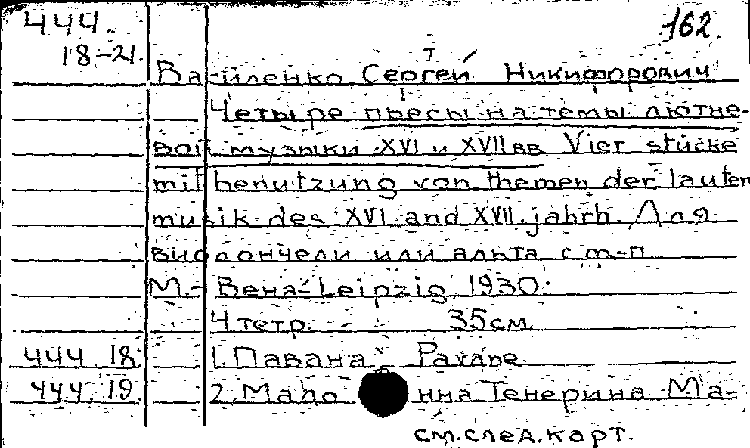 444. 162.
18-21.
Василенко Сергей Никифорович
Четыре пьесы на темы лютне-
вой музыки XVI и XVII вв Vier stücke
mit benutzung von themen der lauten
musik des XVI and XVII jahrh. Для
виолончели или альта с ф-п
М.- Вена-Leipzig 1930.
4 тетр. 35см
444.18 1. Павана Pavane
444.19 2. Мадо нна Тенерина Ма-
см. след. карт.